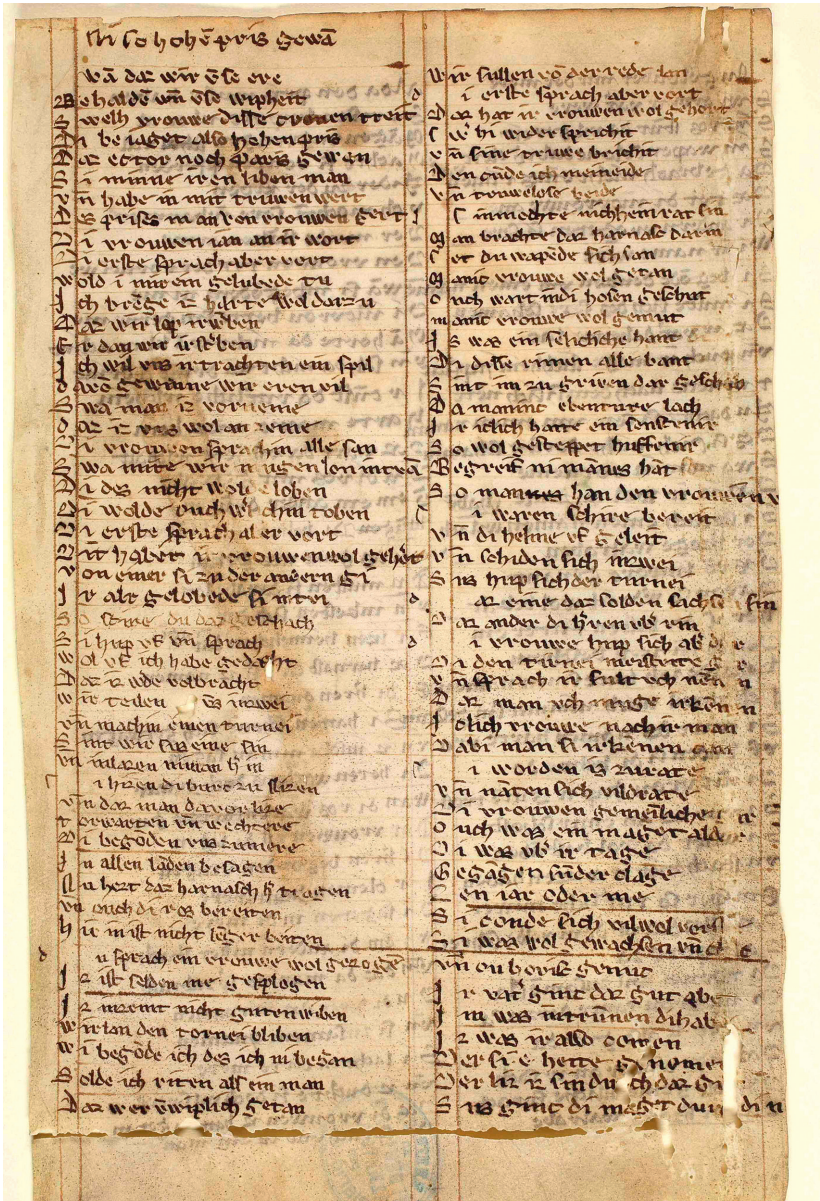 Ni so hohē pris gewā
Wā daz wir v̄se ere
Behaldē vn̄ v̄se wipheit
Swelh vrouwe disse cronen treit
Di beiaget also hohen pris
Daz ector noch paris gewen
Si minne iren liben man
Vn̄ habe in mit truwen wert
Des prises man von vrouwen gert
Di vrouwen ian an ir wort
Di erste sprach aber vort
Wold i mir ein gelubede tu
Ich brēge iz harte wol dar zu
Daz wir lop irwˀben
Er dan wir irstˀben
Ich wil vns irtrachten ein spil
Da vō gewinne wir eren vil
Swa man iz vorneme
Daz iz vns wol an zeme
Di vrowen sprachin alle san
Swa mite wir mugen lon intvā
Di des nicht wolde loben
Di wolde ouch welchin toben
Di erste sprach aber vort
Nu habet ir vrouwen wol gehort
Von einer si zu der andern gi
Ir alr gelobede si intei
So stille du daz geschach
Si hup vf vn̄ sprach
Wol vf ich habe gedacht
Daz iz wˀde volbracht
Wir teilen v̄s inzwei
Vn̄ machin einen turnei
Sint wir sin eine sin
Vn̄ inlazen niman hˀ in
i hiezen di burc zu slizen
Vn̄ daz man da vor lize
Torwarten vn̄ wechtere
Di begōden vns zu mere
In allen lāden besagen
Nu hert daz harnasch hˀ tragen
Vn̄ ouch di ros bereiten
Hie in ist nicht lēger beiten
u sprach ein vrouwe wol gezogē
Iz ist selden me gepflogen
Iz inzemt nicht guten wiben
Wir lan den tornei bliben
Wi begōde ich des ich ni began
Solde ich riten alse ein man
Daz wer v̄wiplich getan
Wir sullen vō der rede lan
i erste sprach aber vort
Daz hat ir vrouwen wol gehort
Swˀ hi wider spricht
Vn̄ sine truwe bricht
Den cūde ich meineide
Vn̄ truwelose beide
S inmochte nichhein rat sin
Man brachte daz harnasc dar in
Set du wapēde sich san
Manic vrouwe wol getan
Ouch wart in di hosen geschut
Manic vrouwe wol gemut
Is was ein selicliche hant
Di disse rimen alle bant
Sint im zu griven dar geschah
Da maninc ebenture lach
Ir iclich hatte ein senftenir
So wol gesteppet huffenir
Begreif ni mānes hāt
So mannes han den vrouwen
i waren schire bereit
Vn̄ di helme vf geleit
Vn̄ schiden sich inzwei
Sus hup sich der turnei
az eine daz solden sachsen sin
Daz ander di hˀren vbˀ rin
i vrouwe hup sich abˀ
Di den turnei meisterte
Vn̄ sprach ir sult vch nēn
Daz man vch muge irkēn
Iclich vrouwe nach ir man
Da bi man si irkenen
i worden is zu rate
Vn̄ naten sich vil drate
Di vrouwen gemeīliche
Ouch was ein maget alda
Di was vbˀ ir tage
Gegagen sūder clage
Zen iar oder me
Si conde sich vil wol
Si was wol gewachsen vn̄
Vn̄ ouh orisc gemut
Ir vatˀ ginc daz gut abe
Im was intrūnen di habe
Iz was ir also comen
Der si e hette genomen
Der liz iz sin durch daz
Sus ginc di maget durch din